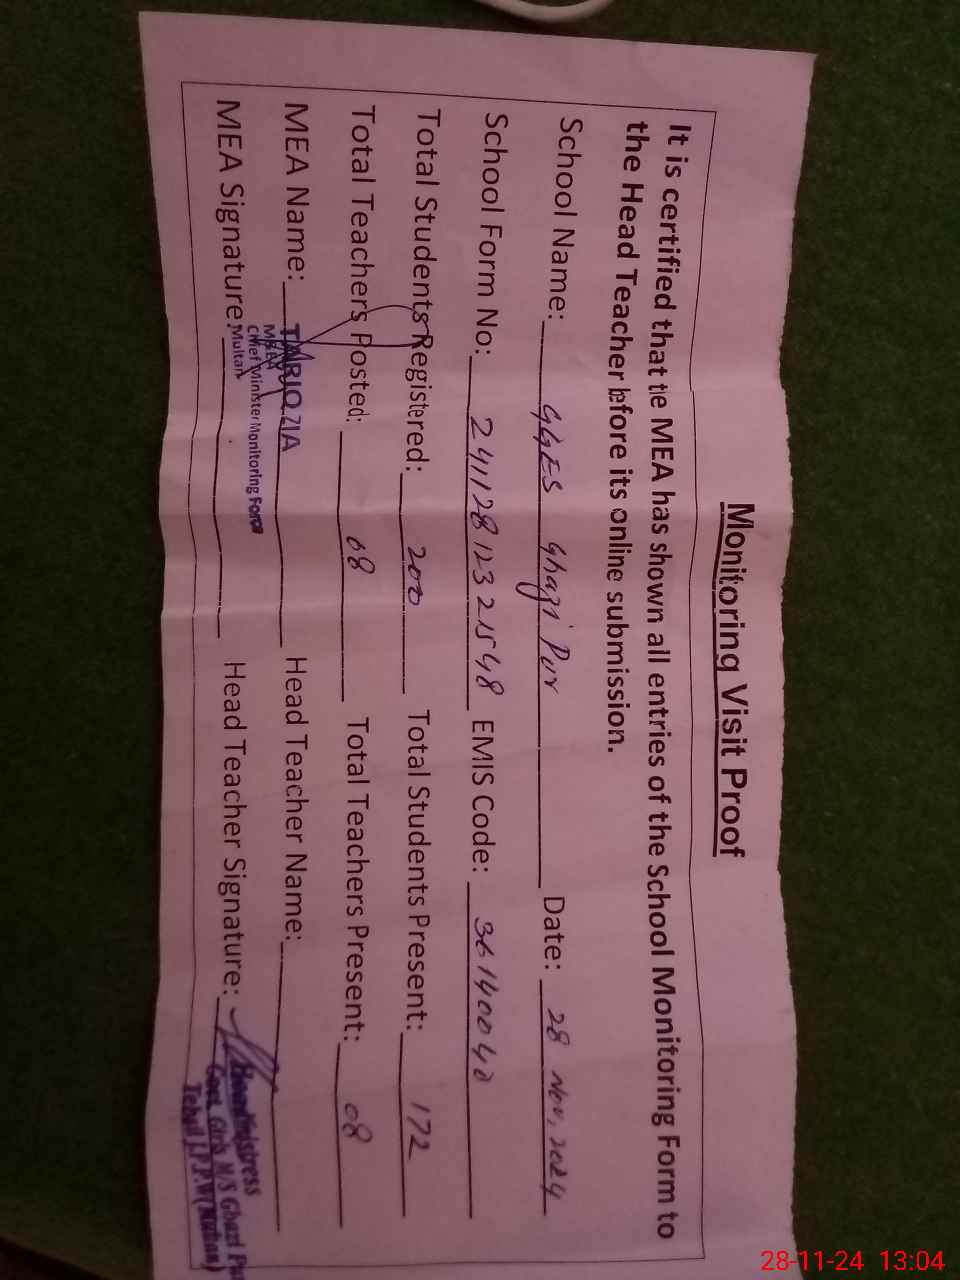 Monitoring Visit Proof
It is certified that the MEA has shown all entries of the School Monitoring Form to
the Head Teacher before its online submission.
School Name: GGES Ghazi Pur Date: 28 Nov, 2024
School Form No: 24112812321548 EMIS Code: 36140040
Total Students Registered: 200 Total Students Present: 172
Total Teachers Posted: 08 Total Teachers Present: 08
MEA Name: TARIQ ZIA Head Teacher Name:
MEA
Chief Minister Monitoring Force
Multan
MEA Signature: Head Teacher Signature:
Headmistress
Govt. Girls M/S Ghazi Pur
Tehsil J.P.P.W (Multan)
28-11-24 13:04